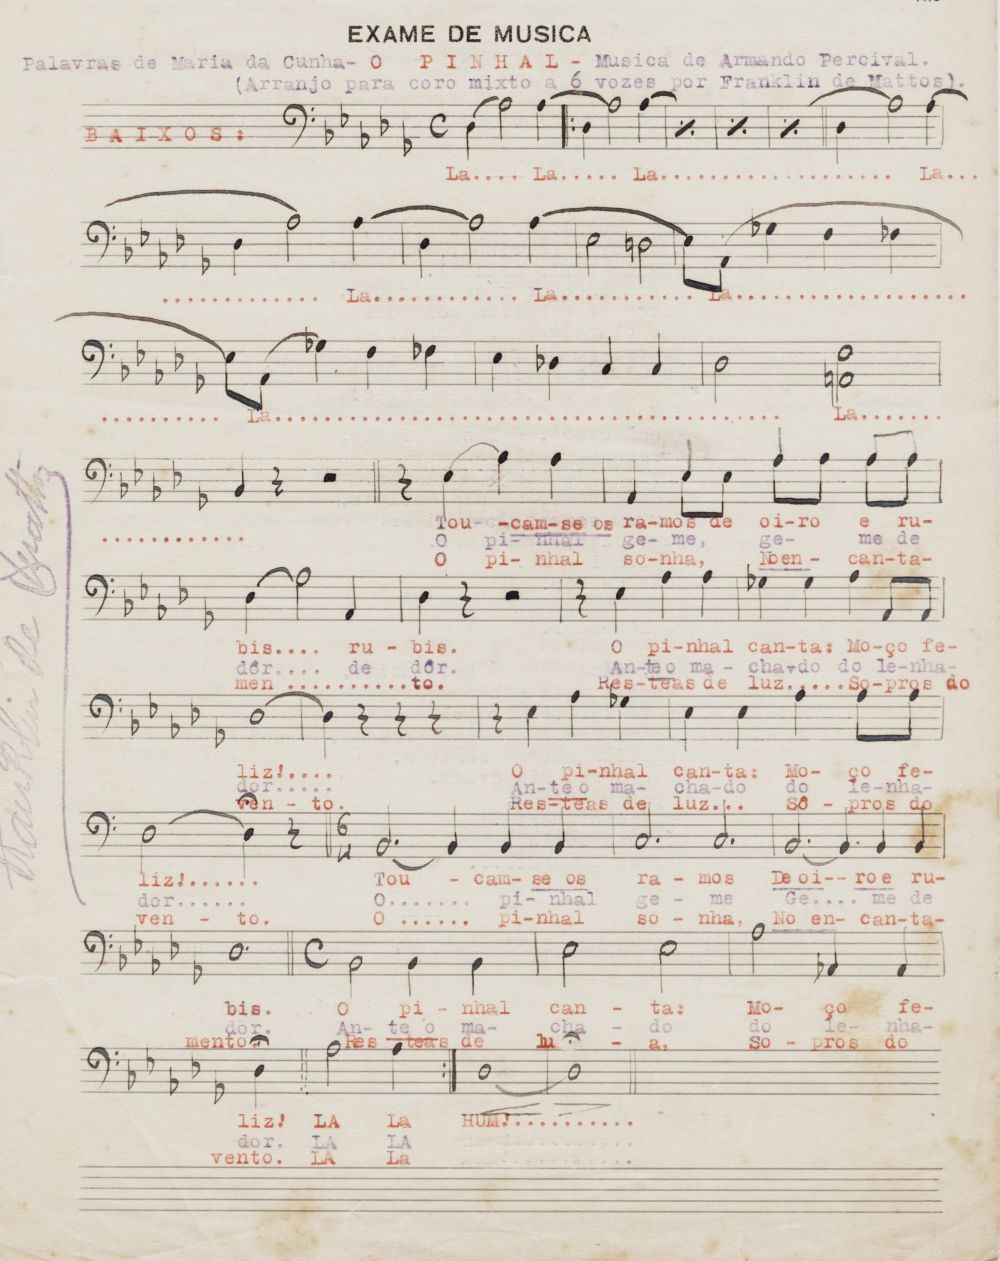 EXAME DE MUSICA
Palavras de Maria da Cunha- O PINHAL - Musica de Armando Percival.
(Arranjo para coro mixto a 6 vozes por Franklin de Mattos).
BAIXOS:
La.... La..... La.................... La...
............. La............ La........... La....................
........... La........................................... La.......
............
Tou--cam-se os ra-mos de oi-ro e ru-
O pi- nhal ge- me, ge- me de
O pi- nhal so-nha, Noen- can-ta-
bis.... ru - bis. O pi-nhal can-ta: Mo-ço fe-
dôr.... de dôr. An-te o ma - cha-do do le-nha-
men ...........to. Res-teas de luz.....So-pros do
liz!.... O pi-nhal can-ta: Mo- ço fe-
dor..... An-te o ma- cha-do do le-nha-
ven - to. Res-teas de luz... Sô - pros do
liz!...... Tou - cam- se os ra - mos De oi-- ro e ru-
dor...... O....... pi- nhal ge - me Ge.... me de
ven - to. O ...... pi-nhal so - nha, No en- can-ta-
bis. O pi - nhal can - ta: Mo- ço fe-
dor. An- te o ma- cha - do do le- nha-
mento. Res - teas de lu - a, So - pros do
liz! LA La HUM!...........
dor. LA LA
vento. LA La
Franklin de